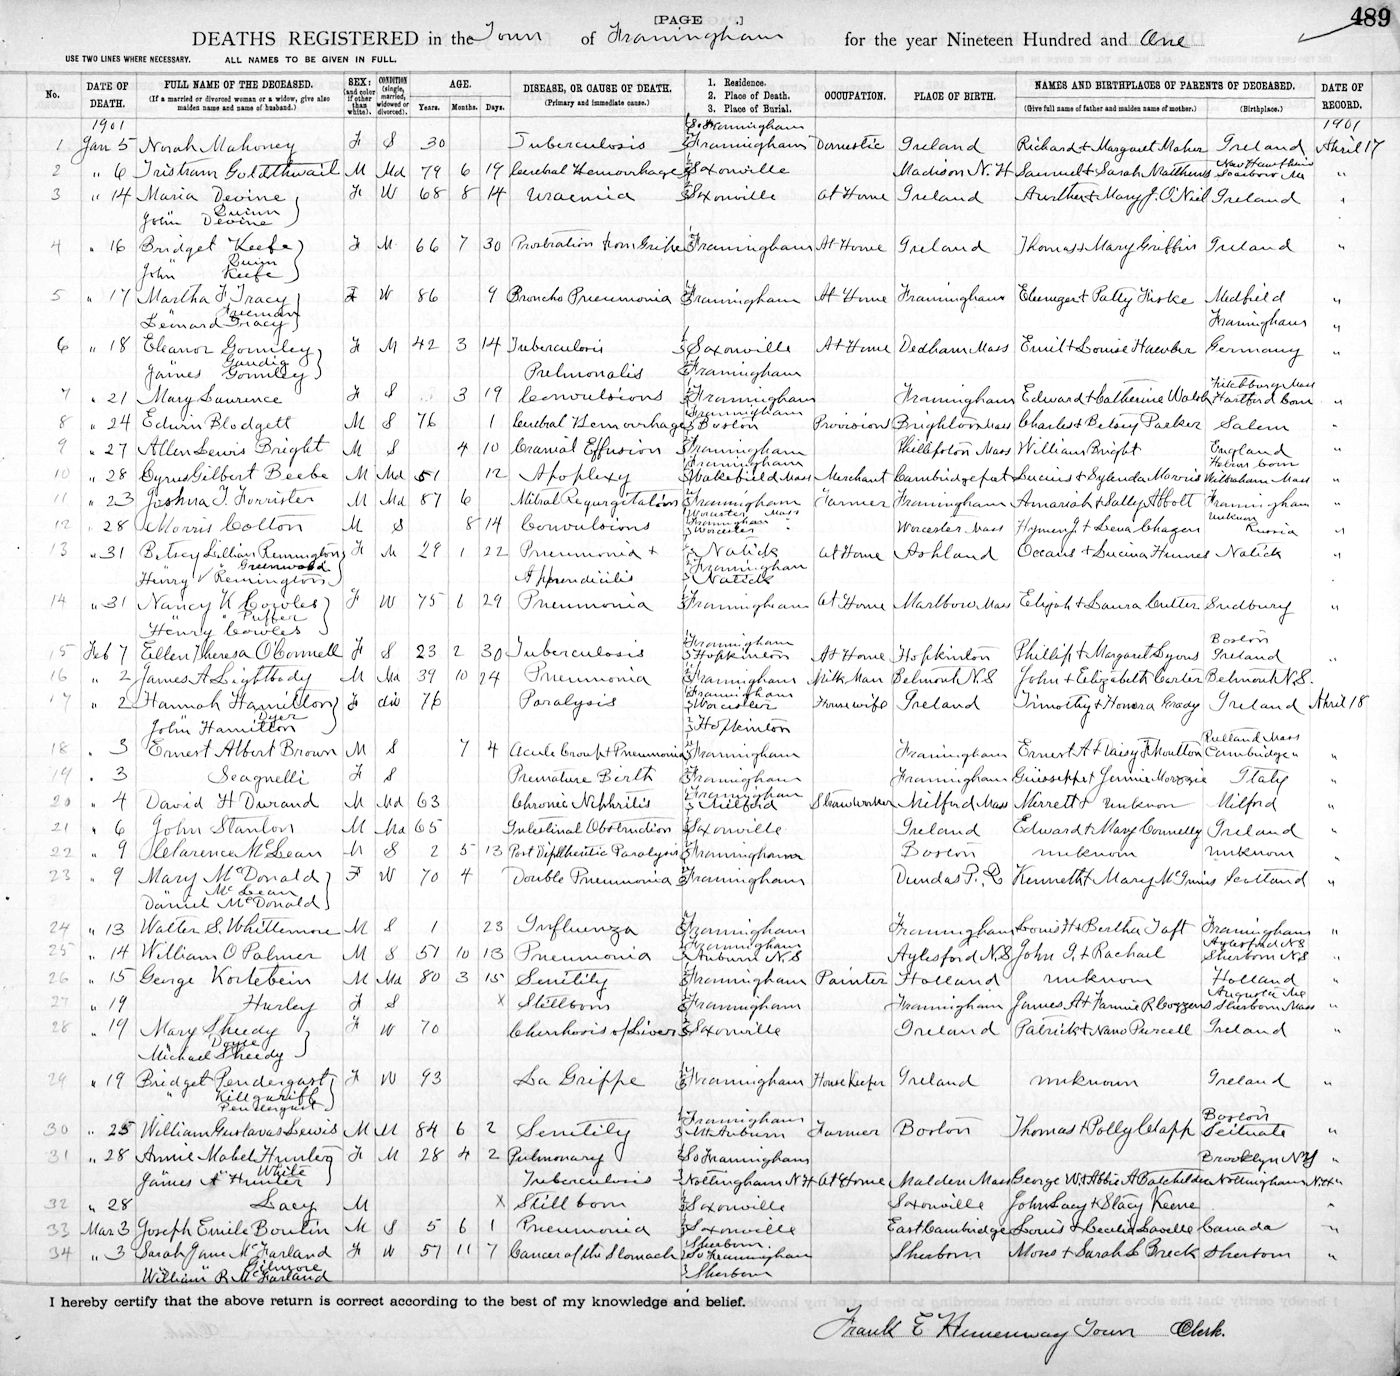 [PAGE .]
489
DEATHS REGISTERED in the Town of Framingham for the year Nineteen Hundred and One
USE TWO LINES WHERE NECESSARY. ALL NAMES TO BE GIVEN IN FULL.
No. DATE OF DEATH. FULL NAME OF THE DECEASED. (If a married or divorced woman or a widow, give also maiden name and name of husband.) SEX: (and color if other than white). CONDITION (single, married, widowed or divorced). AGE. Years. Months. Days. DISEASE, OR CAUSE OF DEATH. (Primary and immediate cause.) 1. Residence. 2. Place of Death. 3. Place of Burial. OCCUPATION. PLACE OF BIRTH. NAMES AND BIRTHPLACES OF PARENTS OF DECEASED. (Give full name of father and maiden name of mother.) (Birthplace.) DATE OF RECORD.
1901 So Framingham 1901
1 Jan 5 Norah Mahoney F S 30 Tuberculosis Framingham Domestic Ireland Richard + Margaret Maher Ireland April 17
2 " 6 Tristram Goldthwait M Md 79 6 19 Cerebral Hemorrhage Saxonville Madison N. H Samuel + Sarah Matthews New Hampshire Scarboro Me "
3 " 14 Maria Devine F W 68 8 14 Uraemia Saxonville At Home Ireland Arthur + Mary J. O'Niel Ireland "
" Quinn
John Devine
4 " 16 Bridget Keefe F M 66 7 30 Prostration from Grippe Framingham At Home Ireland Thomas + Mary Griffin Ireland "
" Quinn
John Keefe
5 " 17 Martha F Tracy F W 86 9 Broncho Pneumonia Framingham At Home Framingham Ebenezer + Patty Fiske Medfield "
" Freeman
Leonard Tracy Framingham "
6 " 18 Eleanor Gormley F M 42 3 14 Tuberculosis Saxonville At Home Dedham Mass Emil + Louise Hawber Germany "
" Gandig
James Gormley Pulmonalis Framingham
7 " 21 Mary Lawrence F S 3 19 Convulsions Framingham Framingham Edward + Catherine Walsh Fitchburg Mass Hartford Conn "
8 " 24 Edwin Blodgett M S 76 1 Cerebral Hemorrhage Framingham Boston Provisions Brighton Mass Charles + Betsey Parker Salem "
9 " 27 Allen Lewis Bright M S 4 10 Cranial Effusion Framingham Phillipston Mass William Bright England "
10 " 28 Cyrus Gilbert Beebe M Md 51 12 Apoplexy Framingham Wakefield Mass Merchant Cambridgeport Lucius + Sylenda Morris Wilbraham Mass "
11 " 23 Joshua T. Forrister M Md 87 6 Mitral Regurgitation Framingham Farmer Framingham Amariah + Sally Abbott Framingham "
12 " 28 Morris Cotton M S 8 14 Convulsions Worcester Mass Framingham Worcester Worcester Mass Hyman J. + Lena Chagan unknown Russia "
13 " 31 Betsey Lillian Remmington F M 29 1 22 Pneumonia + Natick At Home Ashland Oceans + Lucina Hunnes Natick "
" " Greenwood Framingham
Henry V Remington Appendicitis Natick
14 " 31 Nancy K Cowles F W 75 6 29 Pneumonia Framingham At Home Marlboro Mass Elijah + Laura Cutter Sudbury "
" " Puffer
Henry Cowles
15 Feb 7 Ellen Theresa O'Connell F S 23 2 30 Tuberculosis Framingham Hopkinton At Home Hopkinton Phillip + Margaret Lyons Boston Ireland "
16 " 2 James A Lightbody M Md 39 10 24 Pneumonia Framingham Milk Man Belmont N.S John + Elizabeth Carter Belmont N.S. "
17 " 2 Hannah Hamilton F div 76 Paralysis Framingham Worcester Housewife Ireland Timothy + Honora Grady Ireland April 18
" Dyer
John Hamilton Hopkinton
18 " 3 Ernest Albert Brown M S 7 4 Acute Croup + Pneumonia Framingham Framingham Ernest A + Daisy F Moulton Rutland Mass Cambridge " "
19 " 3 Seagnelli F S Premature Birth Framingham Framingham Giuseppe + Jennie Morozzie Italy "
20 " 4 David H Durand M Md 63 Chronic Nephritis Framingham Milford Straw worker Milford Mass Merrett + unknown Milford "
21 " 6 John Stanton M Md 65 Intestinal Obstruction Saxonville Ireland Edward + Mary Connelly Ireland "
22 " 9 Clarence McLean M S 2 5 13 Post Diphtheritic Paralysis Framingham Boston unknown unknown "
23 " 9 Mary McDonald F W 70 4 Double Pneumonia Framingham Dundas P. E Kenneth + Mary McGinnis Scotland "
" McLean
Daniel McDonald
24 " 13 Walter S. Whittemore M S 1 23 Influenza Framingham Framingham Louis H + Bertha Taft Framingham "
25 " 14 William O Palmer M S 51 10 13 Pneumonia Framingham Auburn N.S Aylesford N.S John I. + Rachael Aylesford N S Sherborn N.S "
26 " 15 George Kortebein M Md 80 3 15 Senility Framingham Painter Holland unknown Holland "
27 " 19 Hurley F S X Stillborn Framingham Framingham James A + Fannie R Coggens Augusta Me Sherborn Mass "
28 " 19 Mary Sheedy F W 70 Cherrhosis of Liver Saxonville Ireland Patrick + Nano Purcell Ireland "
" Doyle
Michael Sheedy
29 " 19 Bridget Pendergast F W 93 La Grippe Framingham House Keeper Ireland unknown Ireland "
" Killgariff
Pendergast
30 " 25 William Gustavas Lewis M M 84 6 2 Senility Framingham Mt Auburn Farmer Boston Thomas + Polly Clapp Boston Scituate "
31 " 28 Annie Mabel Hunter F M 28 4 2 Pulmonary So Framingham Brooklyn N Y "
" " White
James A Hunter Tuberculosis Nottingham N H At Home Malden Mass George W. + Abbie A Batchelder Nottingham N.H. "
32 " 28 Lacy M X Still born Saxonville Saxonville John Lacy + Stacy Keene "
33 Mar 3 Joseph Emile Boutin M S 5 6 1 Pneumonia Saxonville East Cambridge Louis + Cecelia Laville Canada "
34 " 3 Sarah Jane McFarland F W 57 11 7 Cancer of the Stomach Sherborn So Framingham Sherborn Moses + Sarah L Breck Sherborn "
" " Gilmore
William R McFarland Sherborn
I hereby certify that the above return is correct according to the best of my knowledge and belief.
Frank E Hemenway Town Clerk.